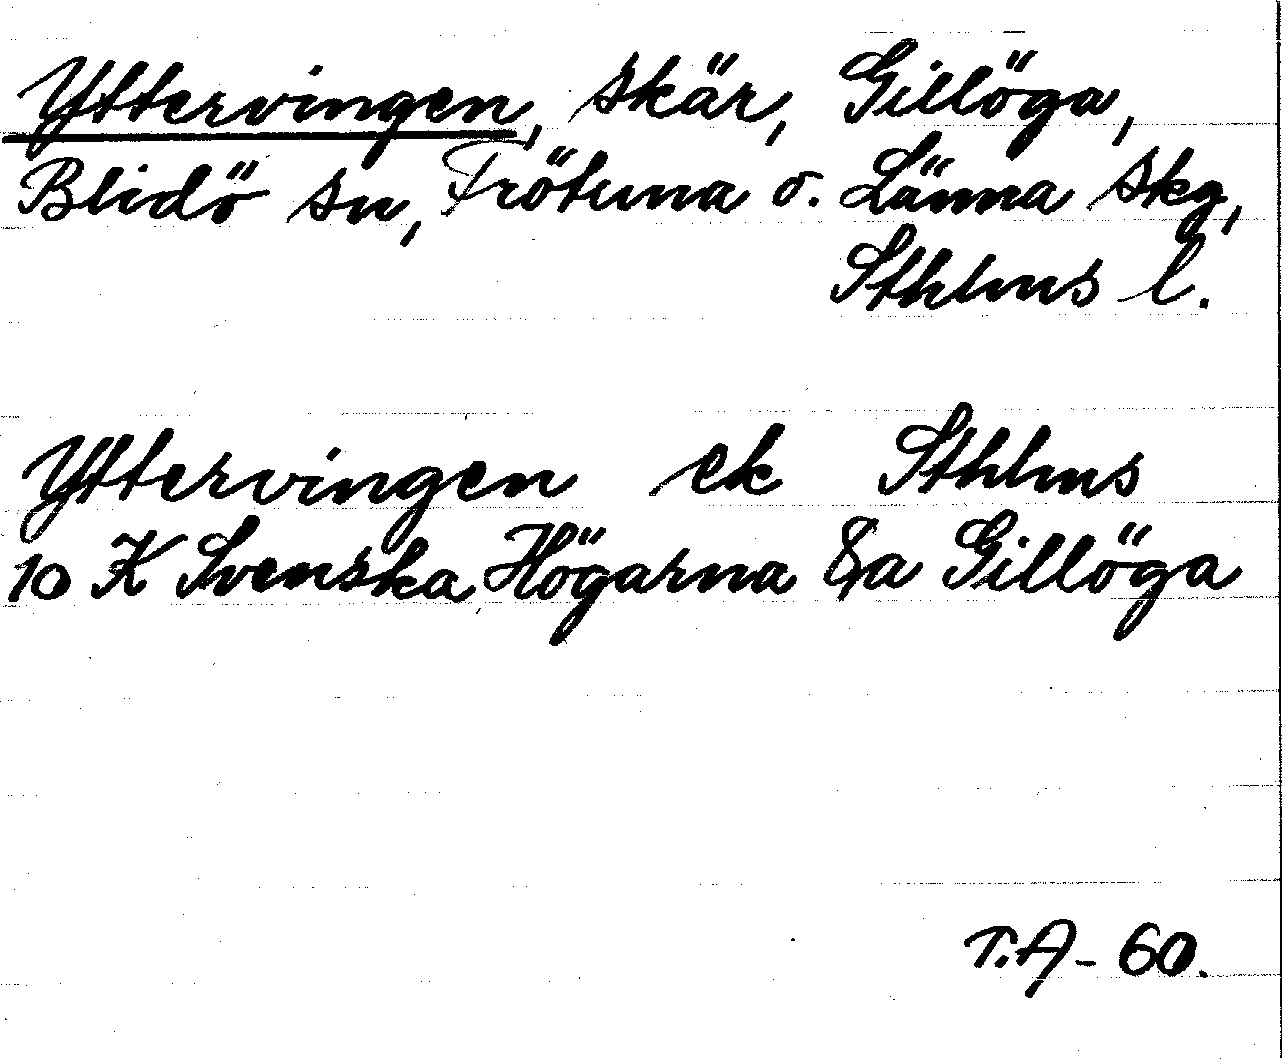 Yttervingen, skär, Gillöga,
Blidö sn, Frötuna o. Länna skg,
Sthlms l.
Yttervingen ek Sthlms
10 K Svenska Högarna &a Gillöga
T.A - 60.